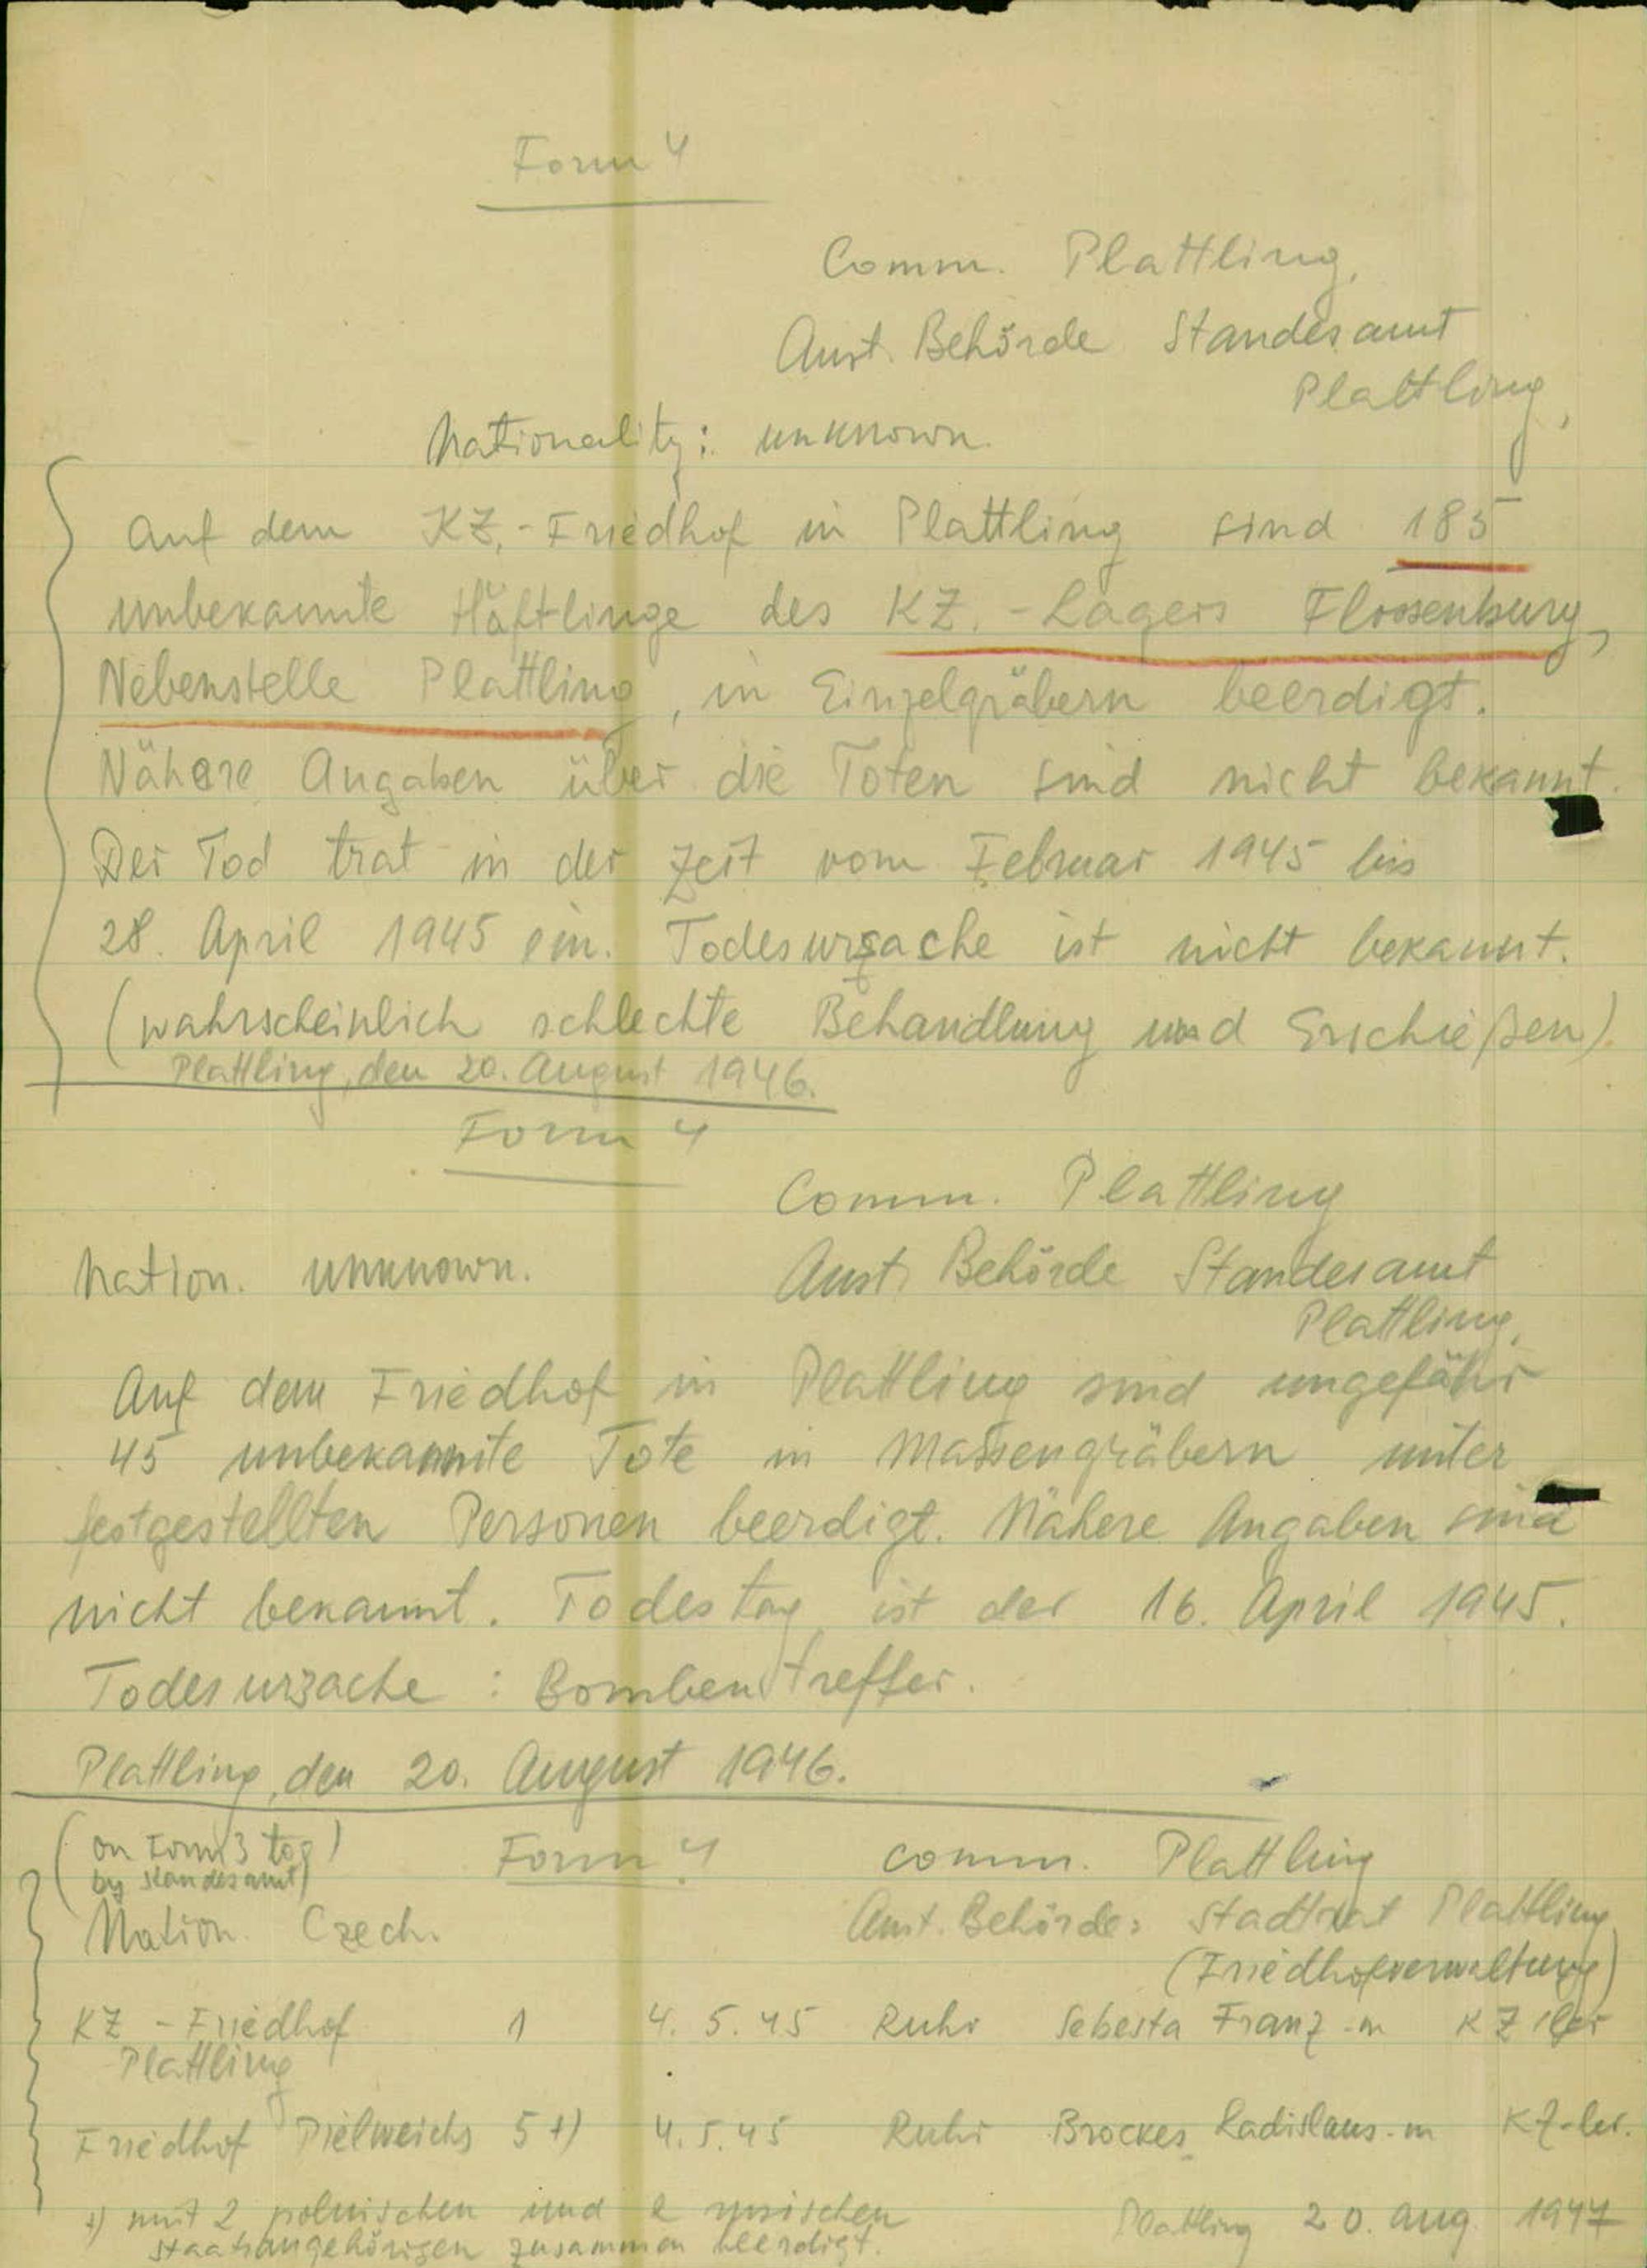 Form 4
Comm. Plattling,
Aust. Behörde Standesamt
Plattling,
Nationality: unknown.
Auf dem KZ.-Friedhof in Plattling sind 185
unbekannte Häftlinge des KZ.-Lagers Flossenburg,
Nebenstelle Plattling, in Einzelgräbern beerdigt.
Nähere Angaben über die Toten sind nicht bekannt.
Der Tod trat in der Zeit vom Februar 1945 bis
28. April 1945 ein. Todesursache ist nicht bekannt.
(wahrscheinlich schlechte Behandlung und Erschießen).
Plattling, den 20. August 1946.
Form 4
Comm. Plattling
Nation. unknown. Aust. Behörde Standesamt
Plattling,
Auf dem Friedhof in Plattling sind ungefähr
45 unbekannte Tote in Massengräbern unter
festgestellten Personen beerdigt. Nähere Angaben sind
nicht bekannt. Todestag ist der 16. April 1945.
Todesursache : Bombentreffer.
Plattling, den 20. August 1946.
(on Form 3 tog) Form 4 comm. Plattling
by Standesamt)
Nation. Czech. Aust. Behörde: Stadtrat Plattling
(Friedhofverwaltung)
KZ - Friedhof 1 4. 5. 45 Ruhr Sebesta Franz - m KZ ler
Plattling
Friedhof Pielweichs 5 +) 4. 5. 45 Ruhr Brockes Ladislaus - m KZ-ler.
+) mit 2 polnischen und 2 russischen Plattling 20. Aug 1947
Staatsangehörigen zusammen beerdigt.